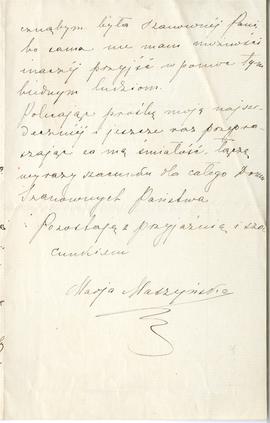 cznąbym była Szanownej Pani
bo sama nie mam możności
inaczéj przyjść w pomoc tym
biednym ludziom.
Polecając prośbę moją najser-
deczniéj i jeszcze raz przepra-
szając za mą śmiałość łączę
wyrazy szacunku dla całego Domu
Szanownych Państwa
Pozostaję z przyjaźnią i sza-
cunkiem
Marja Maszyńska